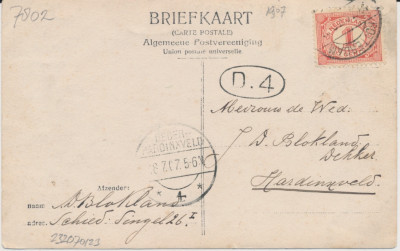 7802
1907
BRIEFKAART
(CARTE POSTALE)
Algemeene Postvereeniging
Union postale universelle
1
D.4
Mevrouw de Wed.
J D. Blokland
Dekker
Hardinxveld.
HARDINXVELD
4
Afzender:
Naam: A Blokland
Adres: Schied: Singel 26 I